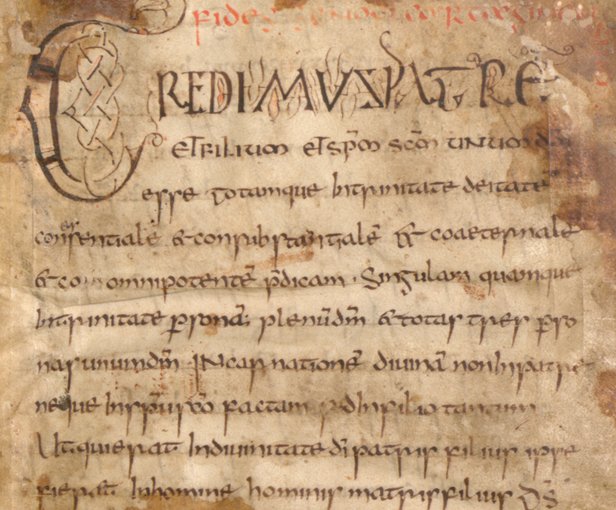 Fides
CREDIMUS PATRĒ
et filium et sp̄m sc̄m unum dm̄
esse totamque intrinitate deitatē
coessentialē & consubstantialē & coaeternalē
& co omnipotentē p̄dicam · Singularū quamque
Intrinitate p̄sonā; plenūdm̄ & totas tres p̄so
nas unumdm̄ INcarnationē diuinā non Inpatre
neque Insp̄u sc̄o factam sed Infilio tantum
Ut qui erat Indiuinitate dī patris filius ipse
fierat Inhomine hominis matris filius d̄s